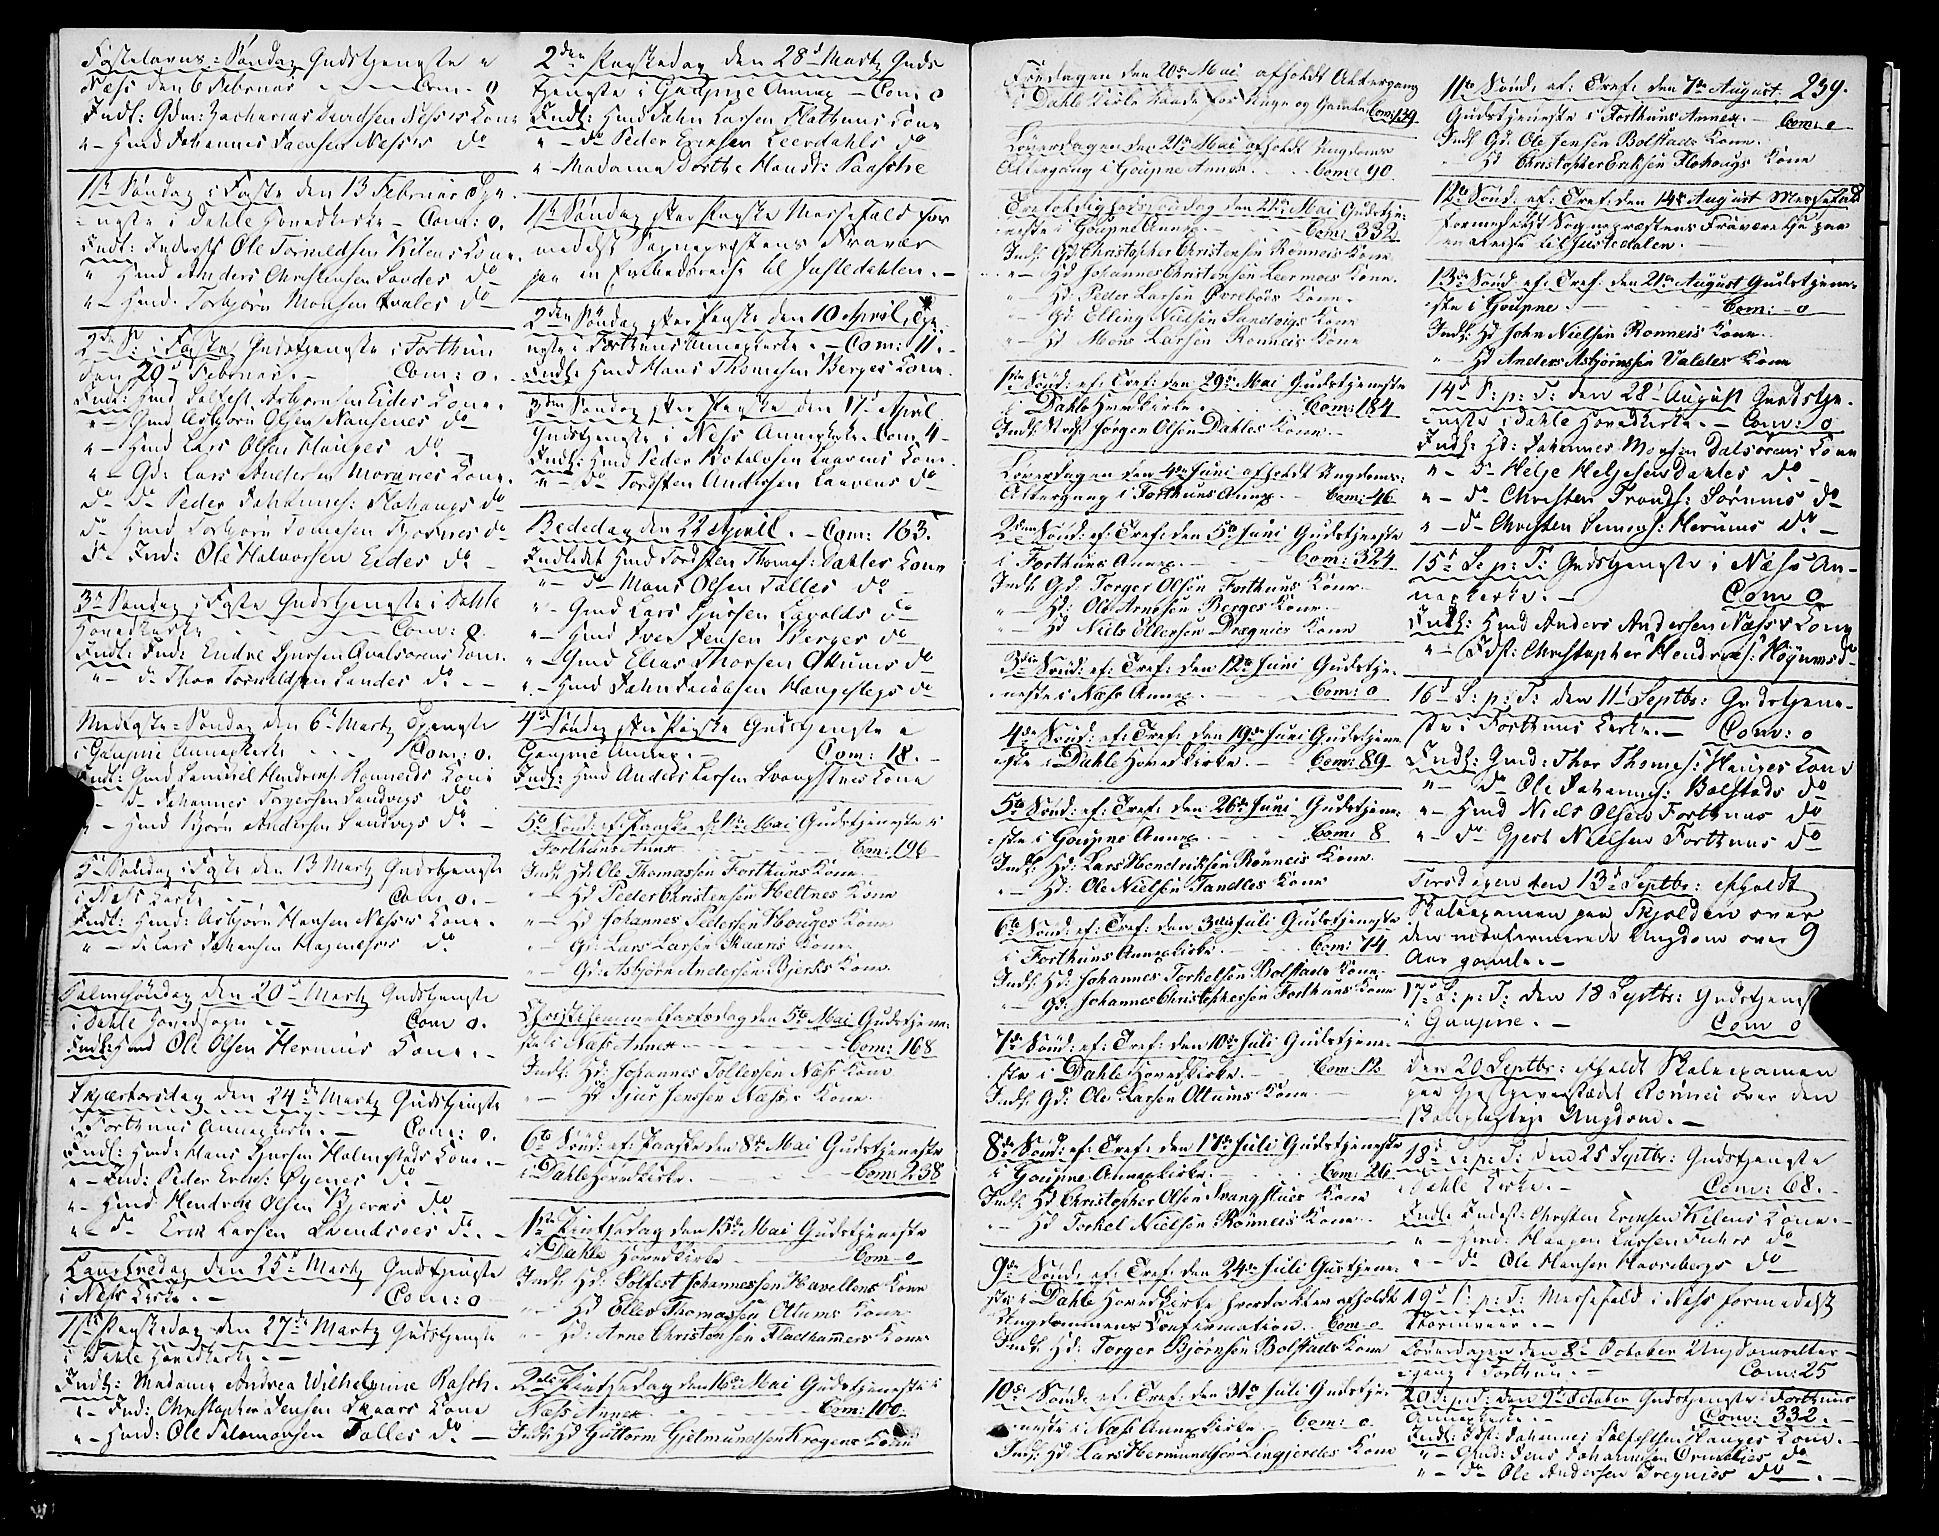 Fastelavns-Søndag Gudstjeneste i
Næss den 6 Februar - - Com: 0
Indl: Gdm: Zacharias Næsses Kone
" - Hmd Johannes Næsses do
1ste Søndag i Faste den 13 Februar Tje-
neste i Dahle Hovedkirke. Com: 0.
Indl: Inderst Ole Kilens Kone.
" Hmd Anders Christensen Sandes do
" - Hmd. Torbjørn Monsen Kvales do
2den S: i Faste Gudstjeneste i Forthun
den 20de Februar. - Com: 0.
Indl: Hmd Asbjørnsen Eides Kone.
" - Gmd Asbjørn Olsen do
" - Hmd Lars Olsen Hauges do
" - Gd: Lars Andersen Moranes Kone.
do do Peder Johannes: Flohaugs do
do Hmd Torbjørn do
do Ind: Ole Halvorsen Eides do -
3de Søndag i Faste Gudstjeneste i Dahle
Hovedkirke - - Com: 0.
Indl: Ind: Endre Kone.
" - do Thor Sandes do - -
Midfaste-Søndag den 6te Martz Tjeneste
i Gaupne Annexkirke - - Com: 0.
Indl: Gmd Samuel Kone
" - do Johannes Torgersen Sandvigs do
" - Hmd Bjørn Andersen Sandvigs do -
5te Søndag i Faste den 13 Martz Gudstjeneste
i Næss Kirke - - Com: 0.
Indl: Hmd: Asbjørn Hansen Næsses Kone.
" - do Lars Johansen do
Palmesøndag den 20de Martz Gudstjeneste
i Dahle Hovedsogn - - Com 0.
Indl: Hmd Ole Olsen Kone. -
Skjærtorsdag den 24de Martz Gudstjeneste
i Forthuns Annexkirke. - Com: 0.
Indl: Hmd: Hans Holmstads Kone. -
" - Ind: Peder Øyenes do -
" - Hmd Hendrik Olsen do
" do Erik Larsen do. -
Langfredag den 25de Martz Gudstjeneste
i Næss Kirke. - Com: 0
1ste Paaskedag den 27de Martz Gudstjeneste
i Dahle Hovedkirke. -
Indl: Madame Andrea Wilhelmine Rasch.
" - Ind: Christopher Jensen Skaars Kone
" - Hmd: Ole Salomonsen Talles do -
2den Paaskedag den 28de Martz Guds
tjeneste i Gaupne Annex - Com: 0
Indl: Hmd John Larsen Kone
" - do Peder Eriksen Leerdahls do
" - Madame Dorthe
1ste Søndag efter Paaske Messefald for
medelst Sognepræstens Fravær
paa en Embedsreise til Justedahlen. -
2den Søndag efter Paaske den 10 April, Tje-
neste i Forthuns Annexkirke. - Com: 11. -
Indl: Hmd Hans Thomesen Berges Kone.
3die Søndag efter Paaske den 17de April
Gudstjeneste i Næss Annexkirke. Com: 4 -
Indl: Hmd Peder Kone.
" - do Torsten Andersen do -
Bededag den 22 April. - Com: 163.
Indledet Hmd Torsten Thomes: Dahles Kone
" - do Mons Olsen Talles do -
" - Gmd Lars do
" - Hmd Iver Jensen Berges do
" - Gmd Elias Thorsen Ottums do
" - Hmd John Jacobsen do
4de Søndag efter Paaske Gudstjeneste i
Gaupne Annex. - Com: 18. -
Indl: Hmd Anders Larsen Kone
5te Sønd: ef: Paaske d: 1ste Mai Gudstjeneste i
Forthuns Annex - - Com: 196
Indl: Hd: Ole Thomassen Forthuns Kone
" - Hd Peder Christensen Heltnes Kone
" - Hd Johannes Pedersen Houges Kone
" - Gd: Lars Larsen Skaars Kone
" - Gd: Asbjørn Andersen Bjerks Kone.
Christi Himmelfartsdag den 5te Mai Gudstjene-
ste i Næss Annex - - Com: 168
Indl: Hd: Johannes Tollersen Næss Kone
" - Hd Sjur Jenssen Næsses Kone
6te Sønd: ef: Paaske den 8de Mai Gudstjeneste
i Dahle Hovedkirke. - - Com: 238
1ste Pintsedag den 15de Mai Gudstjeneste
i Dahle Hovedkirke - Com - 0
Indl: Hd: Solfest Johannessen Havellens Kone
" - Hd Ellev Thomassen Ottums Kone
" - Hd: Arne Christensen Fladhammers Kone
2den Pintsedag den 16de Mai Gudstjeneste i
Næss Annex. - - Com: 100.
Indl: Hd Guttorm Gjelmundsen Krogens Kone
Fredagen den 20de Mai afholdt Altergang
i Dahle Kirke baade for Unge og Gamle Com: 129.
Løverdagen den 21de Mai afholdt Ungdoms
Altergang i Goupne Annex. - Com: 90.
Trefoldighedssøndag den 22de Mai Gudstje-
neste i Goupne Annex. - Com: 332
Indl: Gd Christopher Christensen Ronneis Kone.
" - Hd Johannes Christensen Leermoes Kone.
" - Hd. Peder Larsen Øvrebøes Kone.
" - Gd Elling Nielsen Sandvigs Kone
" - Hd Mons Larsen Ronneis Kone
1ste Sønd: ef: Tref: den 29de Mai Gudstjeneste
i Dahle Hovedkirke. - Com: 184
Indl: Jørgen Olsen Dahles Kone -
Løverdagen den 4de Juni afholdt Ungdoms-
Altergang i Forthuns Annex. - Com: 46
2den Sønd: ef: Tref: den 5te Juni Gudstjeneste
i Forthuns Annex. - Com: 324
Indl: Gd. Torger Olsen Forthuns Kone
" - Hd: Ole Arnesen Berges Kone.
" - Hd Niels Ellersen Drægnies Kone
3die Sønd: ef: Tref: den 12te Juni Gudstje-
neste i Næss Annex. - Com: 0
4de Sønd: ef: Tref: den 19de Juni Gudstjene-
ste i Dahle Hovedkirke. - Com: 89
5te Sønd: ef: Tref: den 26de Juni Gudstjene-
ste i Goupne Annex - Com: 8
Indl: Hd: Lars Hendriksen Rønneis Kone.
" - Hd: Ole Nielsen Tandles Kone
6te Sønd: ef: Tref: den 3die Juli Gudstjeneste
i Forthuns Annexkirke. - Com: 14
Indl: Hd: Johannes Torkelsen Bolstads Kone.
" Gd: Johannes Christophersen Forthuns Kone
7de Sønd: ef: Tref: den 10de Juli Gudstjene-
ste i Dahle Hovedkirke. - Com: 12
Indl: Gd: Ole Larsen Ottums Kone
8de Sønd: ef: Tref: den 17de Juli Gudstjeneste
i Goupne Annexkirke. - Com: 26
Indl: Hd Christopher Olsen Kone
" - Hd Torkel Nielsen Rønneis Kone
9de Sønd: ef: Tref: den 24de Juli Gudstjene-
ste i Dahle Hovedkirke hvorda blev afholdt
Ungdommens Confirmation. Com: 0
Indl: Hd: Torger Bjørnsen Bolstads Kone
10de Sønd: ef: Tref: den 31de Juli Gudstje-
neste i Næss Annexkirke - Com: 0
Indl: Hd: Lars Hermundsen Lingjerdes Kone
11te Sønd: ef: Tref: den 7de August. 239.
Gudstjeneste i Forthuns Annex. - Com: 0
Indl: Gd: Ole Jensen Bolstads Kone.
" Hd Christopher Eriksen Flohaugs Kone
12te Sønd: ef: Tref: den 14de August Messefald
formedelst Sognepræstens Fraværelse paa
en Reise til Justedalen. -
13de Sønd: ef: Tref: den 21de August Gudstjene-
ste i Goupne. - Com: - 0
Indl: Hd John Nielsen Ronneis Kone.
" - Hd Anders Asbjørnssen Valdes Kone
14de S: p: T: den 28de August Gudstje-
neste i Dahle Hovedkirke. - Com: 0
Indl: Hd: Johannes Monsen Dalsørens Kone
" - do Helje Heljesen Dahles do -
" - do Christen do
" - do Christen do -
15de S: p: T: Gudstjeneste i Næss An-
nexkirke. - Com 0
Indl: Hmd Anders Andersen Næsses Kone
" - Idst: Christopher Hendriks: do
16de S: p: T: den 11te Septbr: Gudstjene-
ste i Forthuns Kirke. - Com: 0
Indl: Gmd: Thor Thomes: Hauges Kone
" - do Ole Johannes: Bolstads do
" - Hmd Niels Olsen Forthuns do
" - do Gjert Nielsen Forthuns do
Tirsdagen den 13de Septbr: afholdt
Skoleexamen paa Skjolden over
den uconfirmerede Ungdom over 9
Aar gamle. -
17de S: p: T: den 18 Septbr: Gudstjeneste
i Gaupne. - Com 0
den 20 Septbr: afholdt Skoleexamen
paa Gjestgiverstædet Rønnei over den
skolepligtige Ungdom. -
18de S: p: T: den 25 Septbr: Gudstjeneste
i Dahle Kirke. - Com: 68.
Indl: Inderst: Christen Eriksen Kilens Kone. -
" - Hmd: Haagen Larsen do
" - do Ole Hansen Havrebergs do
19de S: p: T: Messefald i Næss formedelst
Stormveir. -
Løverdagen den 8de October Ungdomsalter-
gang i Forthun. - Com: 25
20de S: p: T: den 9de October Gudstjeneste i Forthuns
Annexkirke. - Com: 332. -
Indl: Idst: Johannes Hauges Kone. -
" - Gmd: Jens Johannesen do
" - do Ole Andersen Dregnies do - . -